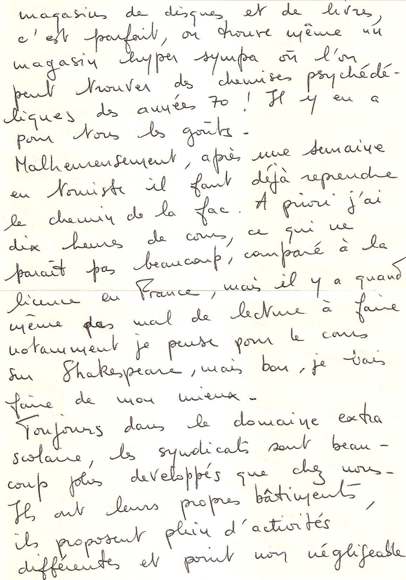 magasins de disques et de livres,
c'est parfait, on trouve même un
magasin hyper sympa où l'on
peut trouver des chemises psychédé-
liques des années 70 ! Il y en a
pour tous les goûts.
Malheureusement, après une semaine
en touriste il faut déjà reprendre
le chemin de la fac. A priori j'ai
dix heures de cours, ce qui ne
paraît pas beaucoup, comparé à la
licence en France, mais il y a quand
même pas mal de lecture à faire
notamment je pense pour le cours
sur Shakespeare, mais bon, je vais
faire de mon mieux.
Toujours dans le domaine extra
scolaire, les syndicats sont beau-
coup plus developpés que chez nous.
Ils ont leurs propres bâtiments,
ils proposent plein d'activités
différentes et point non négligeable